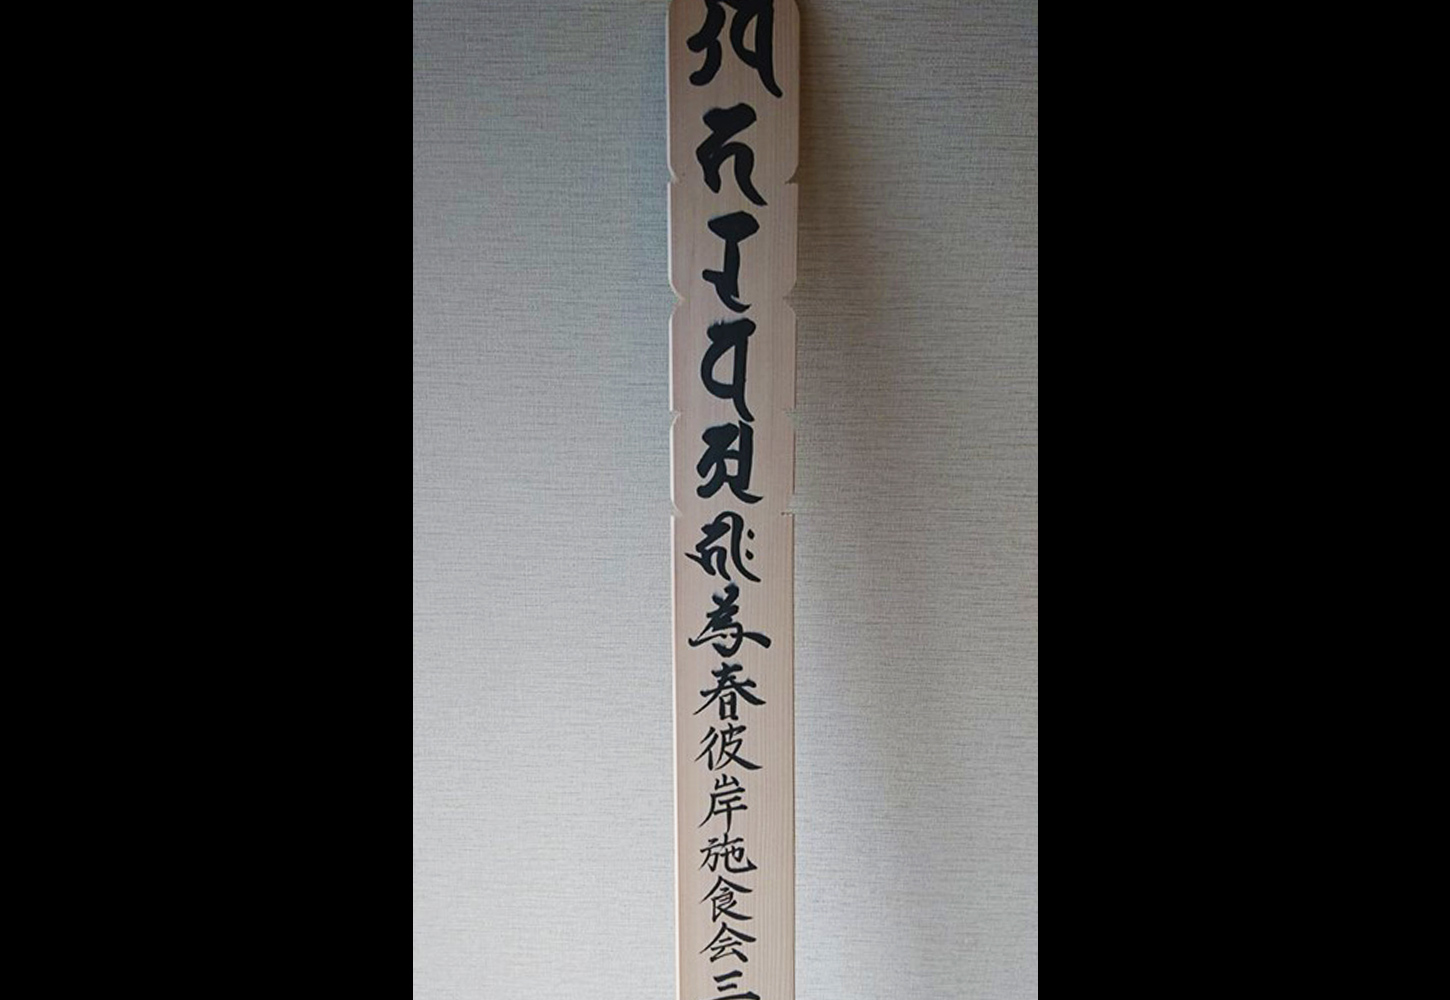 𑖏𑖮𑖨𑖪𑖀𑖮𑖿𑖨𑖱𑖾為春彼岸施食会三